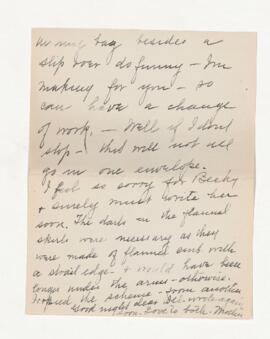 in my bag besides a
slip over do funny - I'm
making for you - so
can have a change
of work. - Well if I dont
stop - this will not all
go in one envelope.
I feel so sorry for Becky
+ surely must write her
soon. The darts in the flannel
skirts were necessary as they
were made of flannel emb with
a straight edge - + would have been
longer under the arms - otherwise.
the scheme - soon another
Good night dear write again
soon. Love to both. Mother